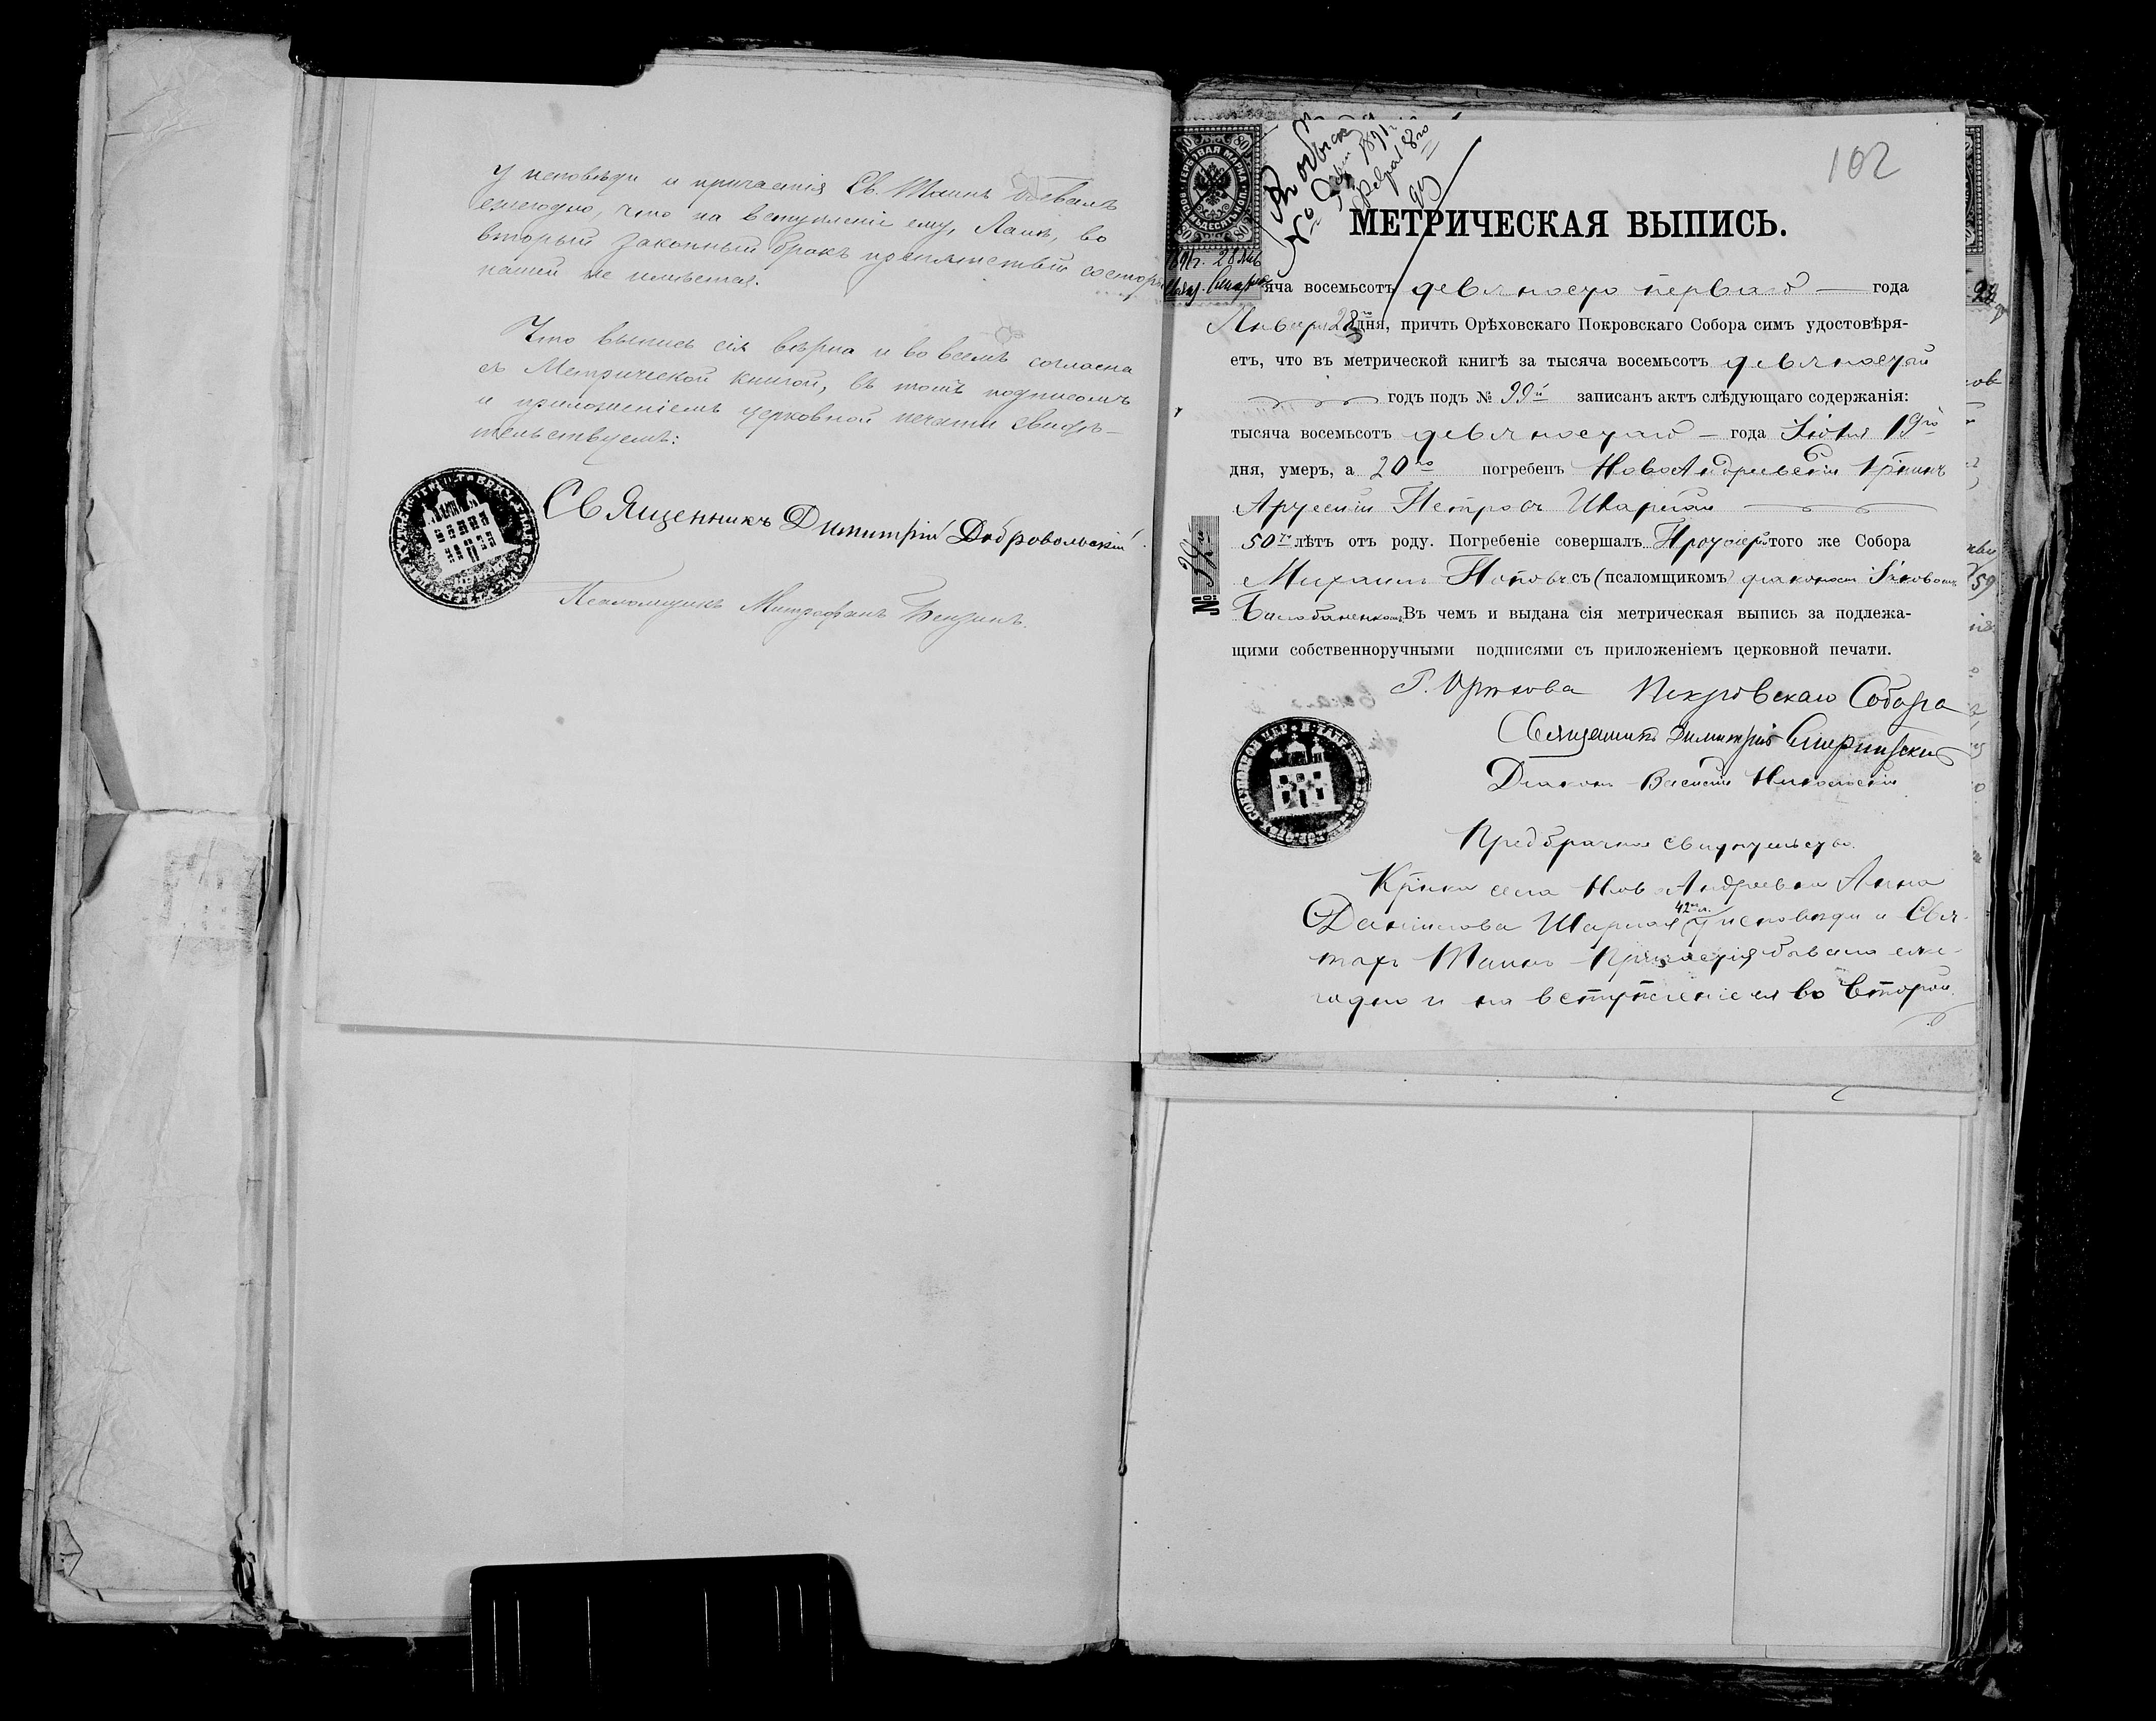 у исповѣди и причастія Св. Таинъ бывалъ
ежегодно, что на вступленіе ему, Лапѣ, во
вторый законный бракъ препятствій со стороны
нашей не имѣется.
Что выпись сія вѣрна и во всемъ согласна
съ Метрической книгой, въ томъ подписомъ
и приложеніемъ церковной печати свидѣ-
тельствуемъ:
Священникъ Димитрій Добровольскій
Псаломщикъ Митрофанъ
102
ГЕРБОВАЯ МАРКА
80
МЕТРИЧЕСКАЯ ВЫПИСЬ.
1891 г. 28 Янв
яча восемьсотъ девяносто перваго года
Января 28го дня, причтъ Орѣховскаго Покровскаго Собора симъ удостовѣря-
етъ, что въ метрической книгѣ за тысяча восемьсотъ девяностый
годъ подъ № 99й записанъ актъ слѣдующаго содержанія:
тысяча восемьсотъ девяностаго года 19го
дня, умеръ, а 20го погребенъ НовоАндреевскій
Петровъ Шарый
50ти лѣтъ отъ роду. Погребеніе совершалъ того же Собора
Михаилъ Поповъ съ (псаломщикомъ) діакономъ
Въ чемъ и выдана сія метрическая выпись за подлежа-
щими собственноручными подписями съ приложеніемъ церковной печати.
Г. Орѣхова Покровскаго Собора
Священникъ Димитрій
Діаконъ Василій Никольскій
Предбрачное свидѣтельство.
села Ново Андреевки Анна
Данилова Шарая 42 л. у исповѣди и Свя-
тыхъ Таинъ Причастія бывала еже-
годно и на вступленіе ея во второй
№ 34